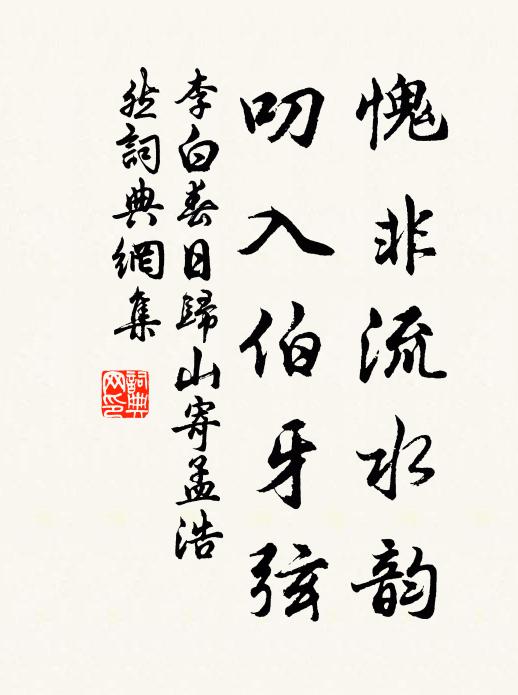 愧非流水韵
叨入伯牙弦
李白春日歸山寄孟浩
然詞典網集
詞典
网印